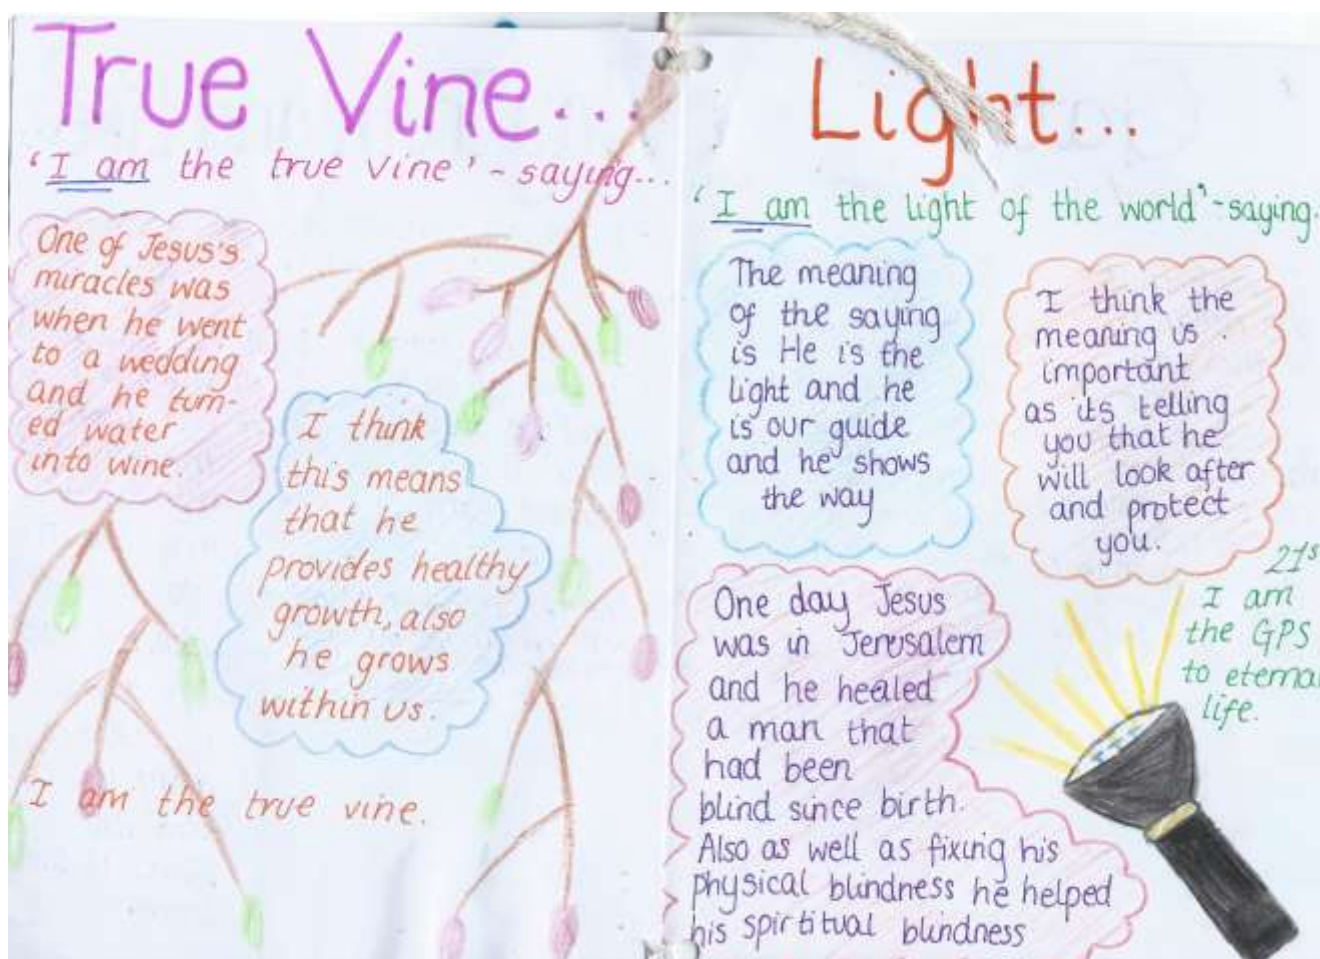 True Vine...
'I am the true vine' - saying...
One of Jesus's
miracles was
when he went
to a wedding
and he turn-
ed water
into wine.
I think
this means
that he
provides healthy
growth, also
he grows
within us.
I am the true vine.
Light...
'I am the light of the world' - saying.
The meaning
of the saying
is He is the
light and he
is our guide
and he shows
the way
I think the
meaning is
important
as its telling
you that he
will look after
and protect
you.
21s
I am
the GPS
to eternal
life.
One day Jesus
was in Jerusalem
and he healed
a man that
had been
blind since birth.
Also as well as fixing his
physical blindness he helped
his spirtitual blindness